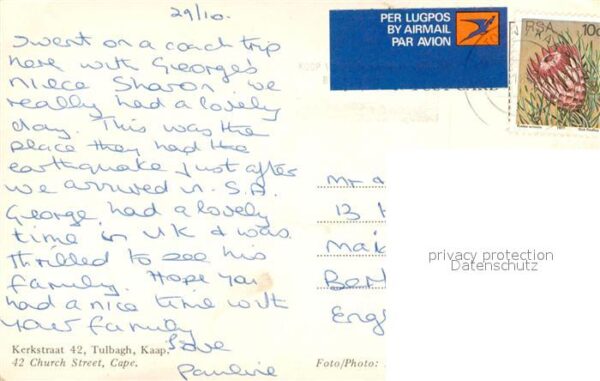 29/10.
I went on a coach trip
here with George's
niece Sharon we
really had a lovely
day. This was the
place they had the
earthquake just after
we arrived in S.A.
George had a lovely
time in UK & was
thrilled to see his
family. Hope you
had a nice time with
your family
Love
Pauline
Kerkstraat 42, Tulbagh, Kaap.
42 Church Street, Cape.
Foto/Photo:
PER LUGPOS
BY AIRMAIL
PAR AVION
RSA
10c
Mr
13
Mai
Engl
privacy protection
Datenschutz